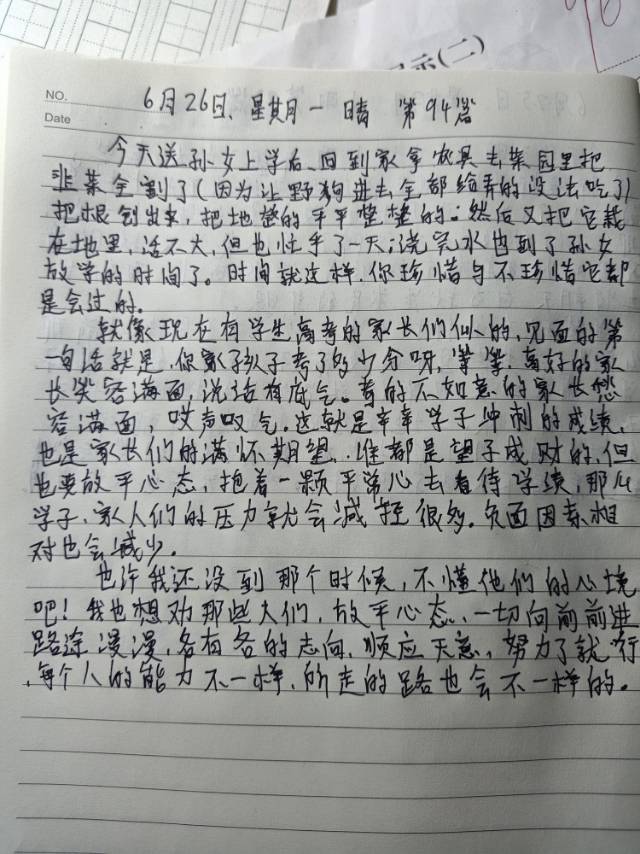 示(二)
NO.
Date
6月26日、星期一 晴 第94篇
今天送孙女上学后、回到家拿农具去菜园里把
韭菜全割了(因为让野狗进去全部给弄的没法吃了)
把根刨出来,把地整的平平整整的;然后又把它栽
在地里,活不大,但也忙乎了一天;浇完水也到了孙女
放学的时间了。时间就这样,你珍惜与不珍惜它都
是会过的。
就像现在有学生高考的家长们似的,见面的第
一句话就是,你家孩子考了多少分呀,等等,考好的家
长笑容满面,说话有底气。考的不如意的家长愁
容满面,哎声叹气。这就是辛辛学子冲刺的成绩,
也是家长们的满怀期望,谁都是望子成财的,但
也要放平心态,抱着一颗平常心去看待学绩,那么
学子、家人们的压力就会减轻很多。负面因素相
对也会减少。
也许我还没到那个时候,不懂他们的心境
吧!我也想劝那些大们,放平心态,一切向前前进
路途漫漫,各有各的志向,顺应天意,努力了就行
,每个人的能力不一样,所走的路也会不一样的。